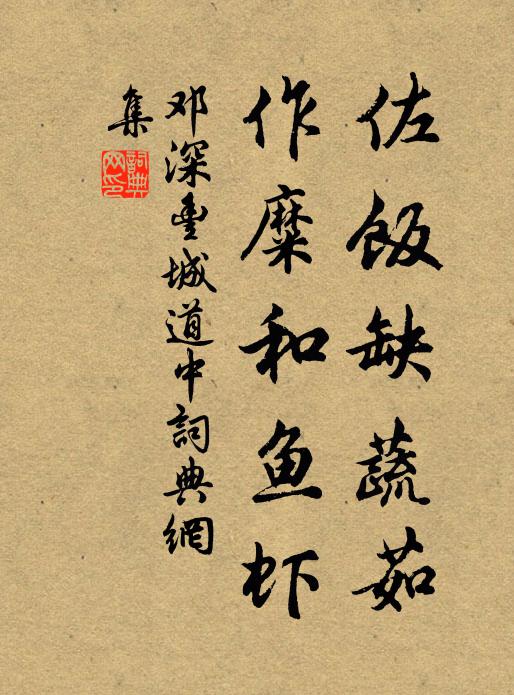 佐饭缺蔬茹
作糜和鱼虾
邓深丰城道中詞典網
集
詞典
网印